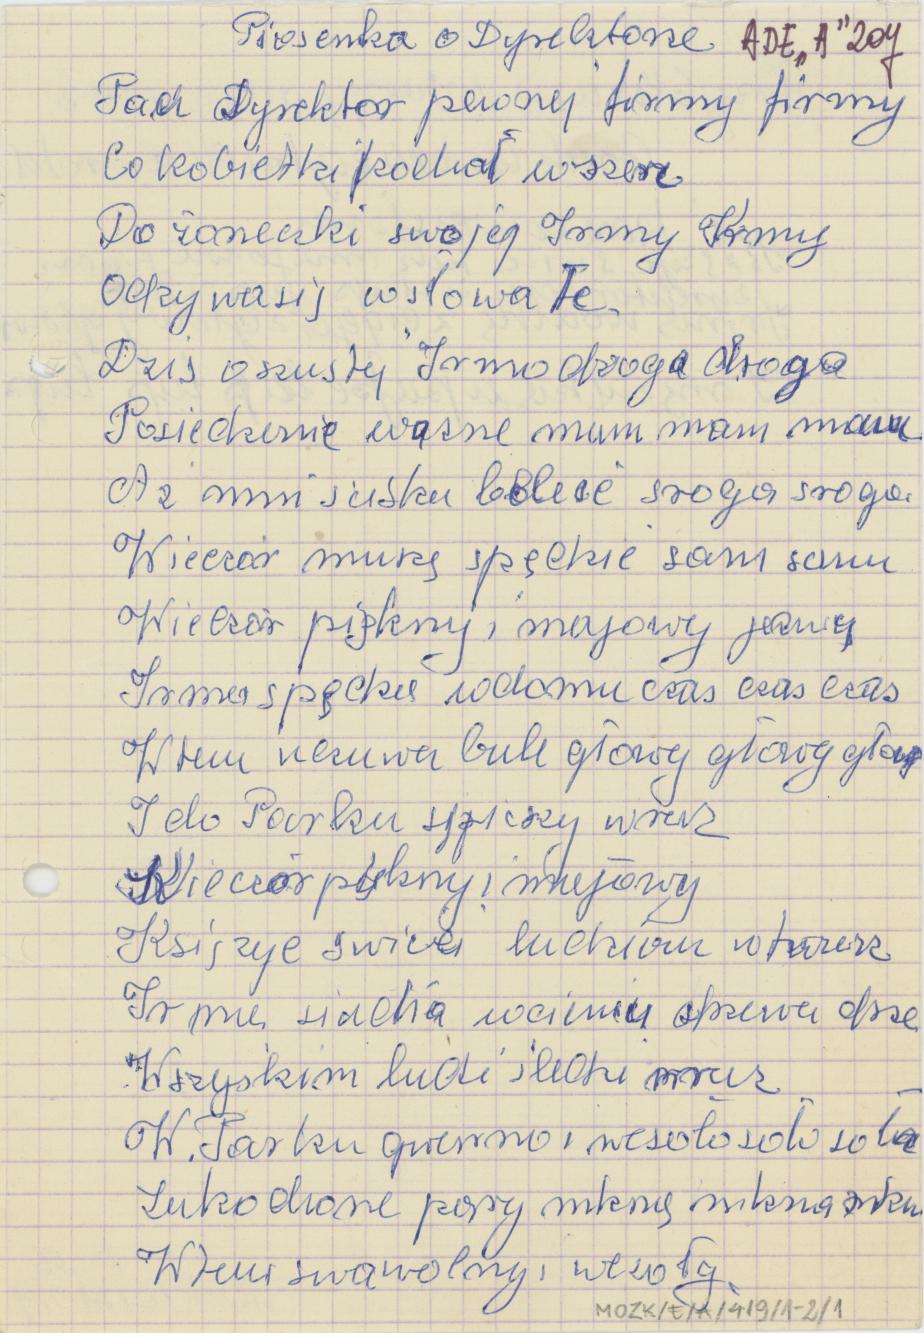 Piosenka o Dyrektorze ADE „A” 204
Pan Dyrektor pewnej firmy firmy
Co kobietki kochał wszerz
Do żoneczki swojej Irmy Irmy
Odzywasię wsłowa Te.
Dziś oszusty Irmo droga droga
Posiedzenie ważne mum mam mam
Az mni suśku boleść sroga sroga.
Wieczór muszę spędzić sam sam
Wieczór piękny i majowy
Irma spędza wdomu czas czas czas
Wtem uczuwa bule głowy głowy głowy
I do Parku spieszy wraz
Wieczór piękny i majowy
Księżyc świeci ludziom
Irma siadła wcieniu drzewa drze
Wszyskim ludzi śledzi wraz
W. Parku gwarno i wesoło soło soło
Zakochane pary mkną mkną mkn
Wtem swawolny i wesoły.
MOZK/E/A/419/1-2/1